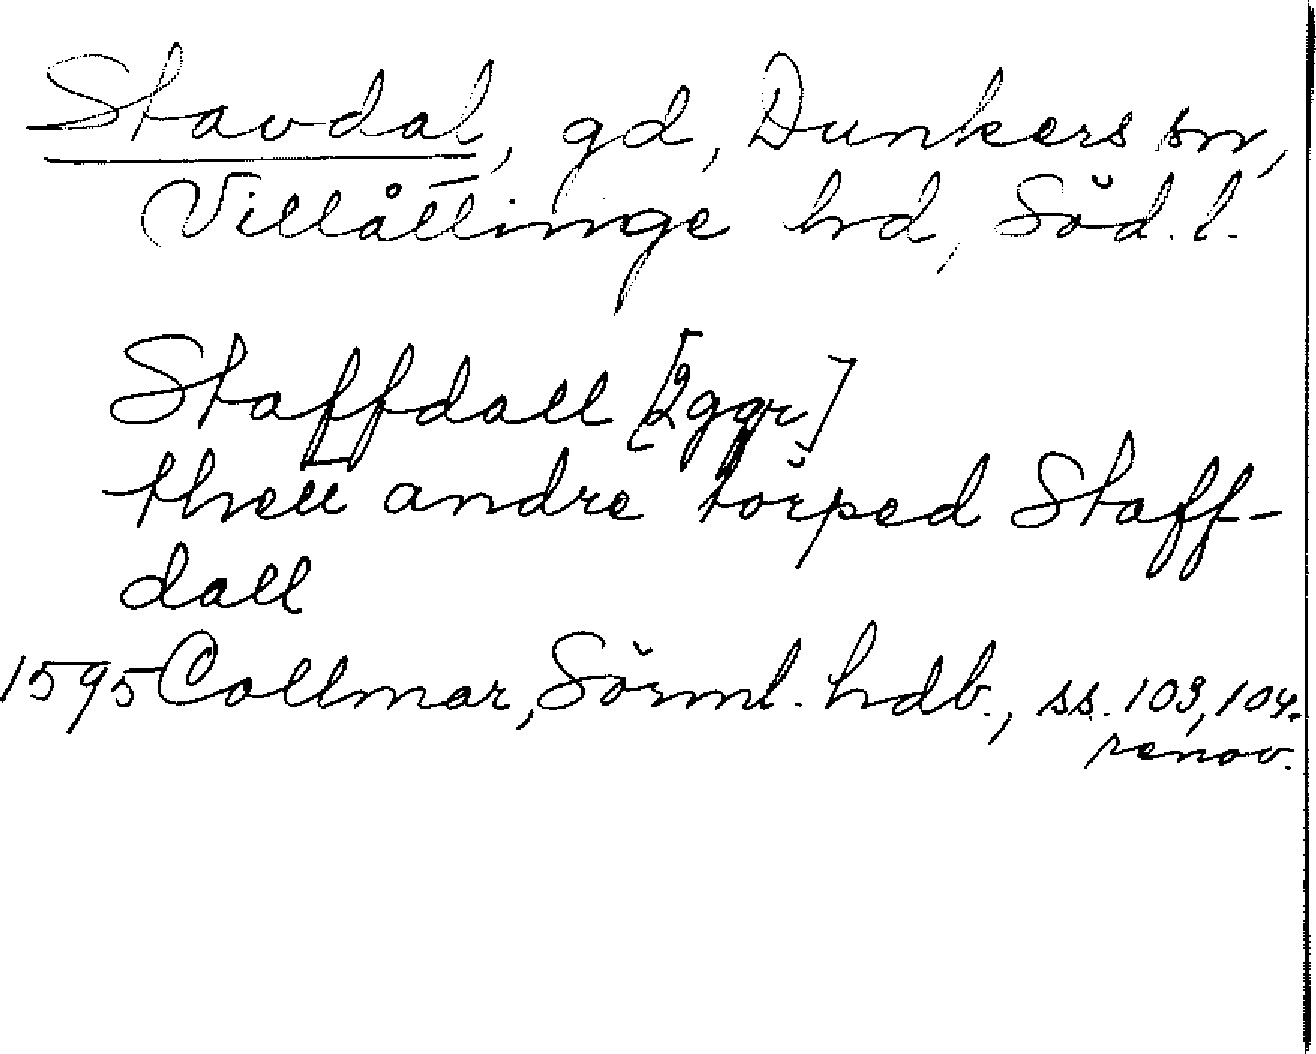 Stavdal, gd, Dunkers sn,
Villåttinge hd, Söd. l.
Staffdall [2 ggr]
thett andre törped Staff-
dall
1595 Collmar, Sörml. hdb., ss. 103, 104.
renov.